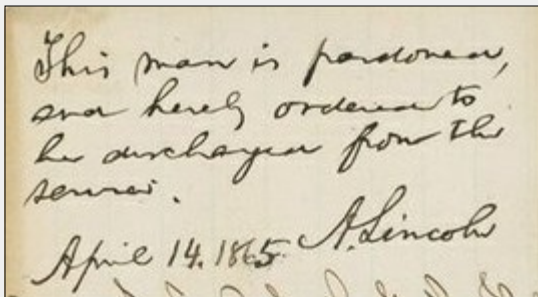 This man is pardoned,
and hereby ordered to
be discharged from the
service.
April 14. 1865. A. Lincoln